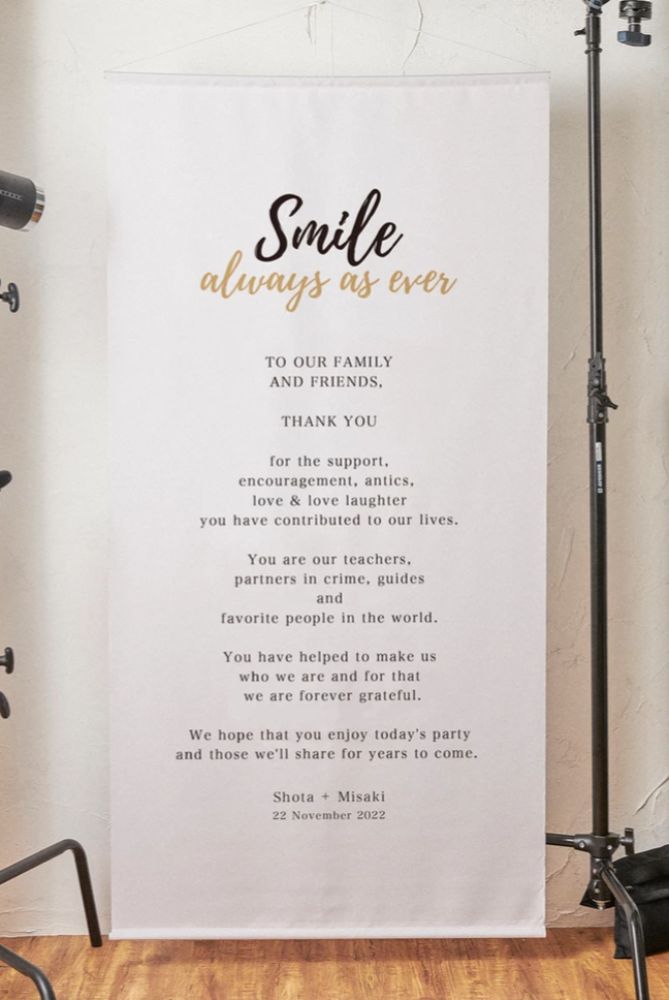 Smile
always as ever
TO OUR FAMILY
AND FRIENDS,
THANK YOU
for the support,
encouragement, antics,
love & love laughter
you have contributed to our lives.
You are our teachers,
partners in crime, guides
and
favorite people in the world.
You have helped to make us
who we are and for that
we are forever grateful.
We hope that you enjoy today's party
and those we'll share for years to come.
Shota + Misaki
22 November 2022